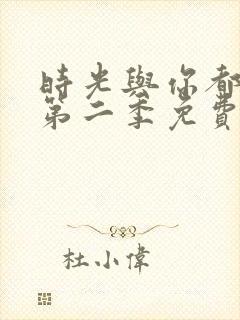 時光與你都
第二季免費
杜小偉